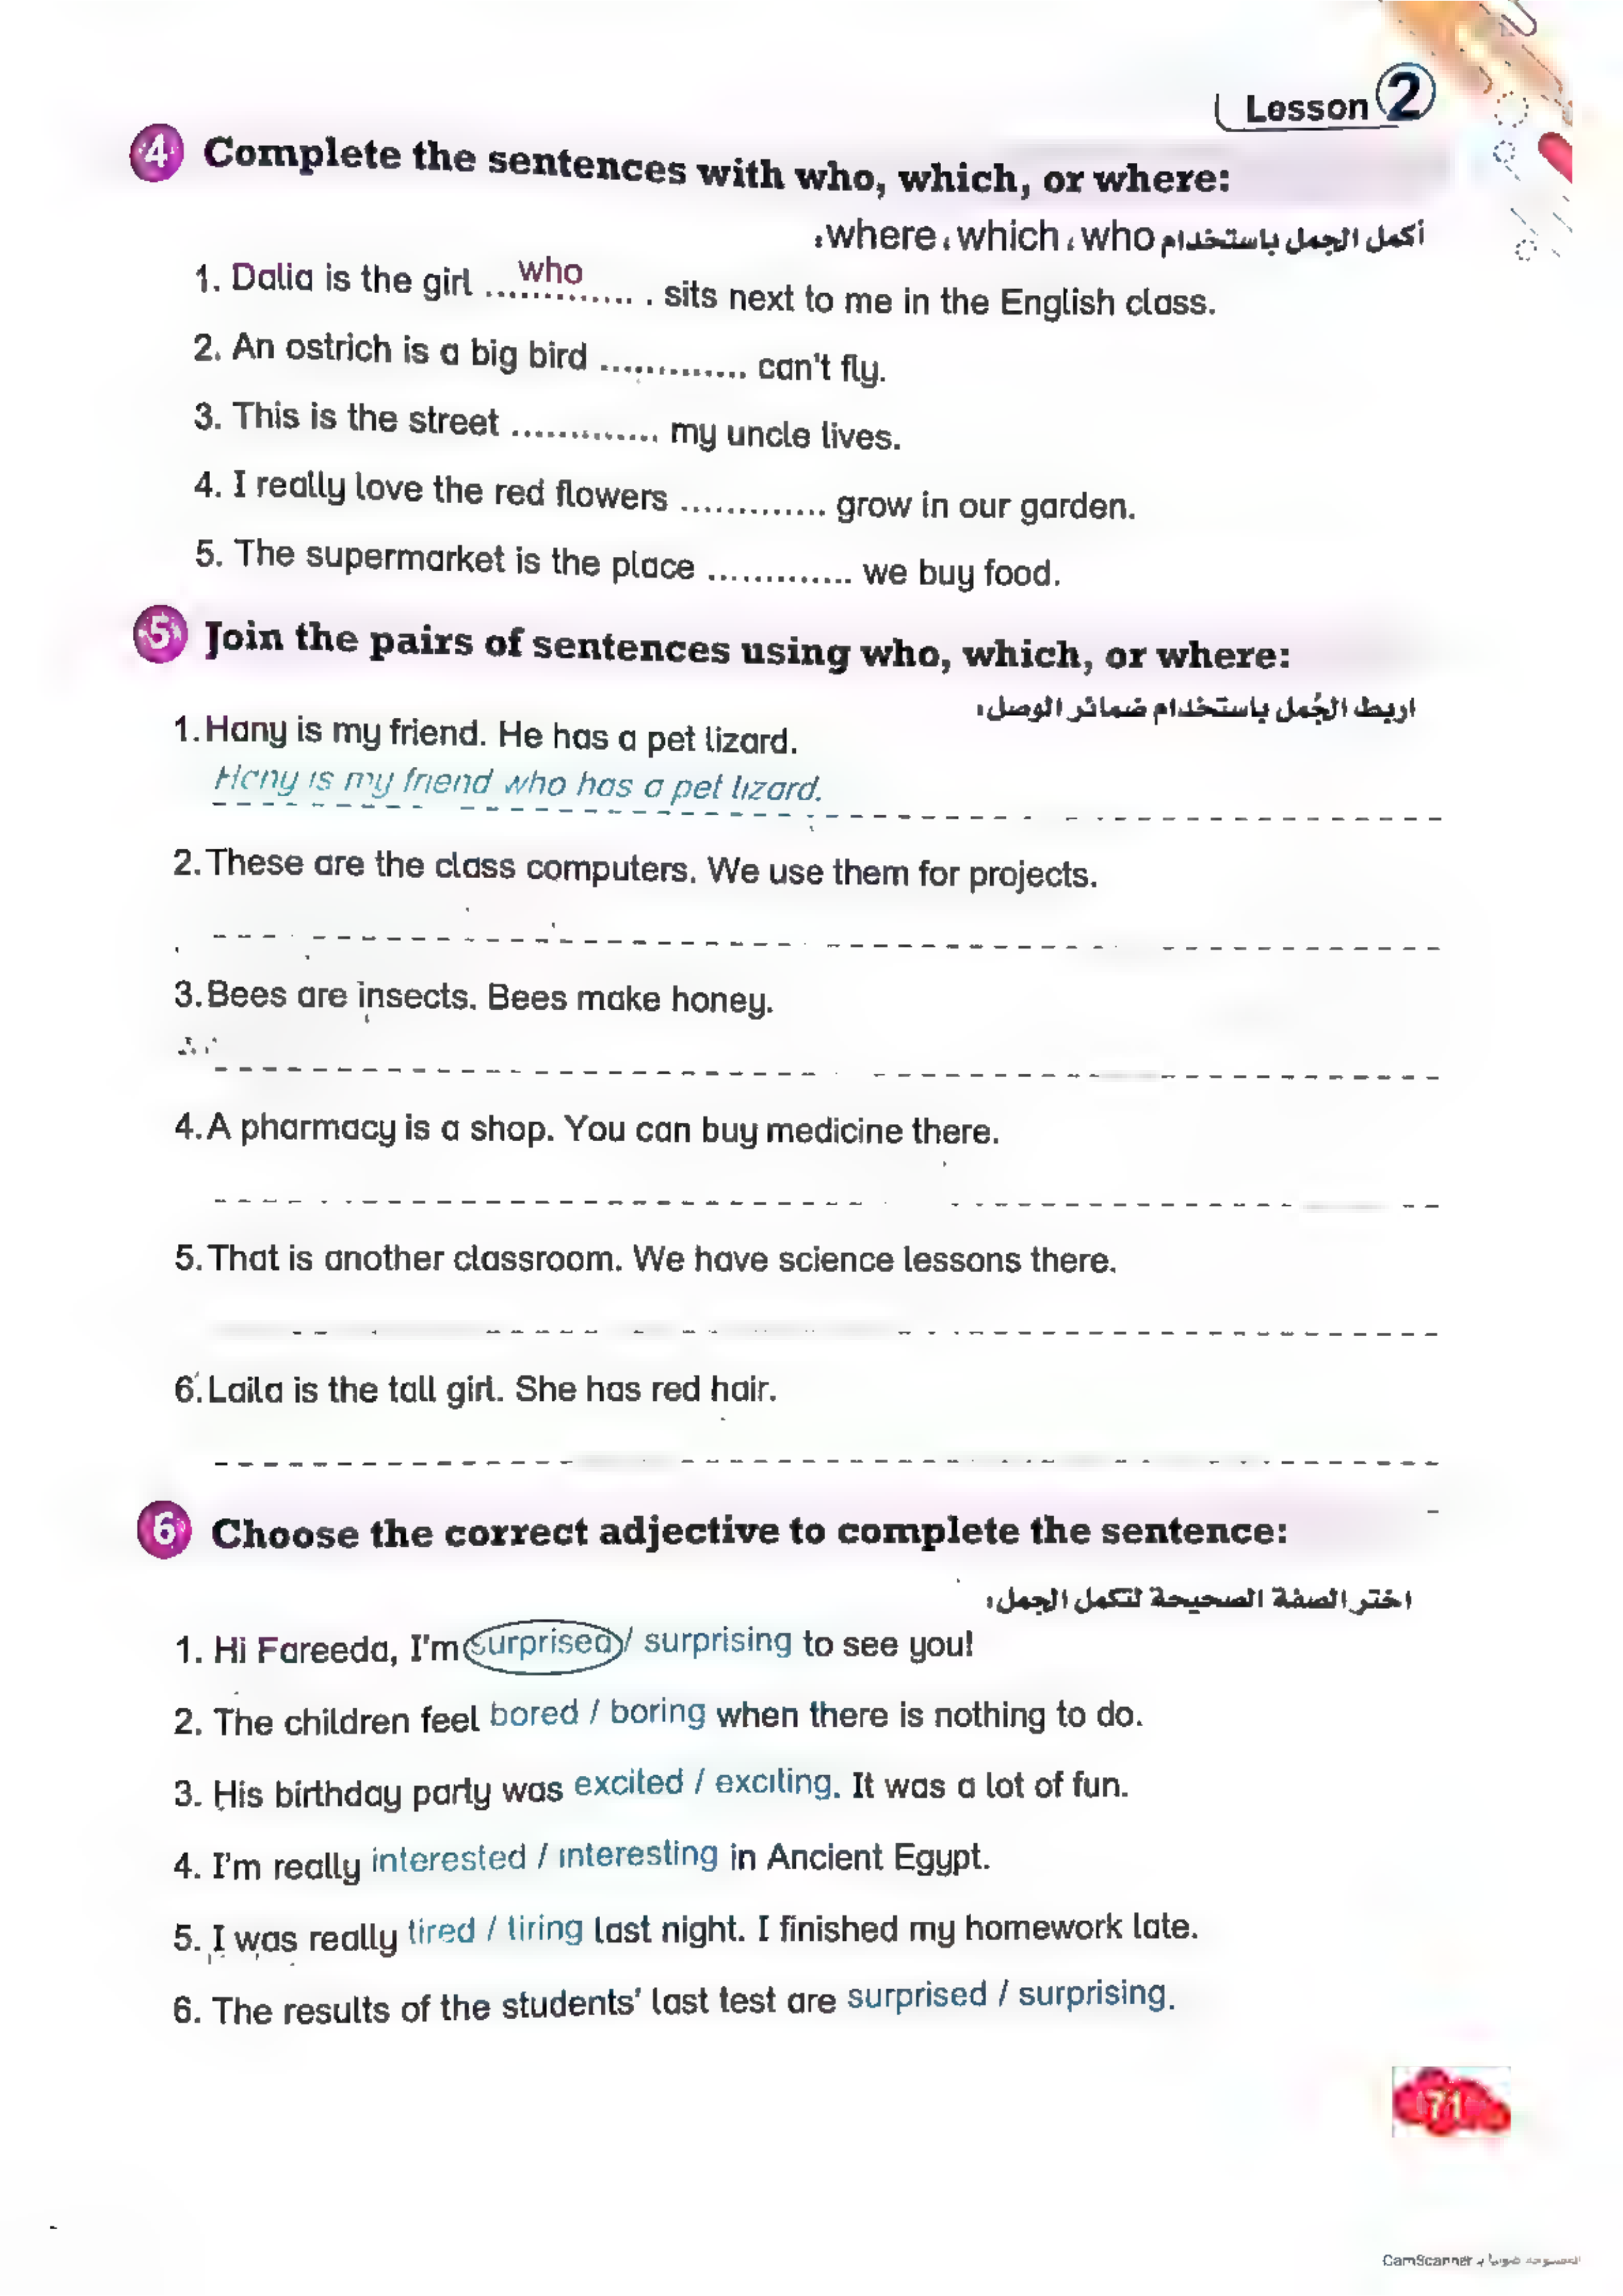 Lesson 2
4 Complete the sentences with who, which, or where:
أكمل الجمل باستخدام who، which، where:
1. Dalia is the girl .............. who . sits next to me in the English class.
2. An ostrich is a big bird ............. can't fly.
3. This is the street ............. my uncle lives.
4. I really love the red flowers ............. grow in our garden.
5. The supermarket is the place ............. we buy food.
5 Join the pairs of sentences using who, which, or where:
اربط الجُمل باستخدام ضمائر الوصل:
1. Hany is my friend. He has a pet lizard.
Hany is my friend who has a pet lizard.
2. These are the class computers. We use them for projects.
3. Bees are insects. Bees make honey.
4. A pharmacy is a shop. You can buy medicine there.
5. That is another classroom. We have science lessons there.
6. Laila is the tall girl. She has red hair.
6 Choose the correct adjective to complete the sentence:
اختر الصفة الصحيحة لتكمل الجمل:
1. Hi Fareeda, I'm surprised / surprising to see you!
2. The children feel bored / boring when there is nothing to do.
3. His birthday party was excited / exciting. It was a lot of fun.
4. I'm really interested / interesting in Ancient Egypt.
5. I was really tired / tiring last night. I finished my homework late.
6. The results of the students' last test are surprised / surprising.
71
الممسوحة ضوئيا بـ CamScanner